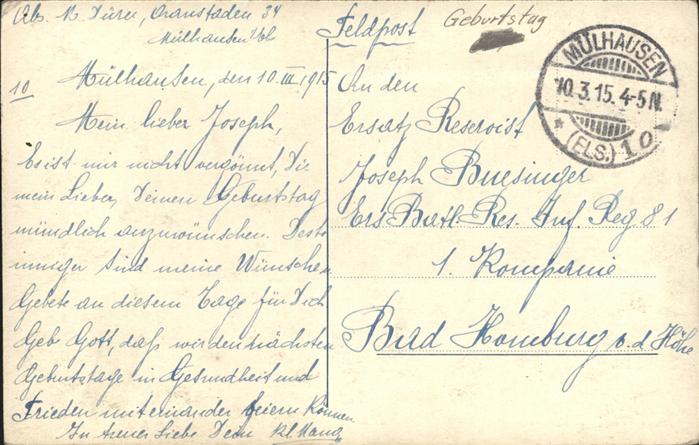 Abs. M. Dürer, Oranstaden 34
Mülhausen
Feldpost
Geburtstag
MÜLHAUSEN
10.3.15. 4-5 N.
* (ELS.) 10
10
Mülhausen, den 10. III. 1915
Mein lieber Joseph,
Es ist mir nicht vergönnt, Dir
mein Lieber, Deinen Geburtstag
mündlich anzuwünschen. Desto
inniger sind meine Wünsche
Gebete an diesem Tage für Dich
Geb Gott, daß wir den nächsten
Geburtstage in Gesundheit und
Frieden miteinander feiern können.
In treuer Liebe Dein
An den
Ersatz Reservist
Joseph Buesinger
Ers Batl. Res. Inf. Reg 81
1. Kompanie
Bad Homburg v. d Höhe